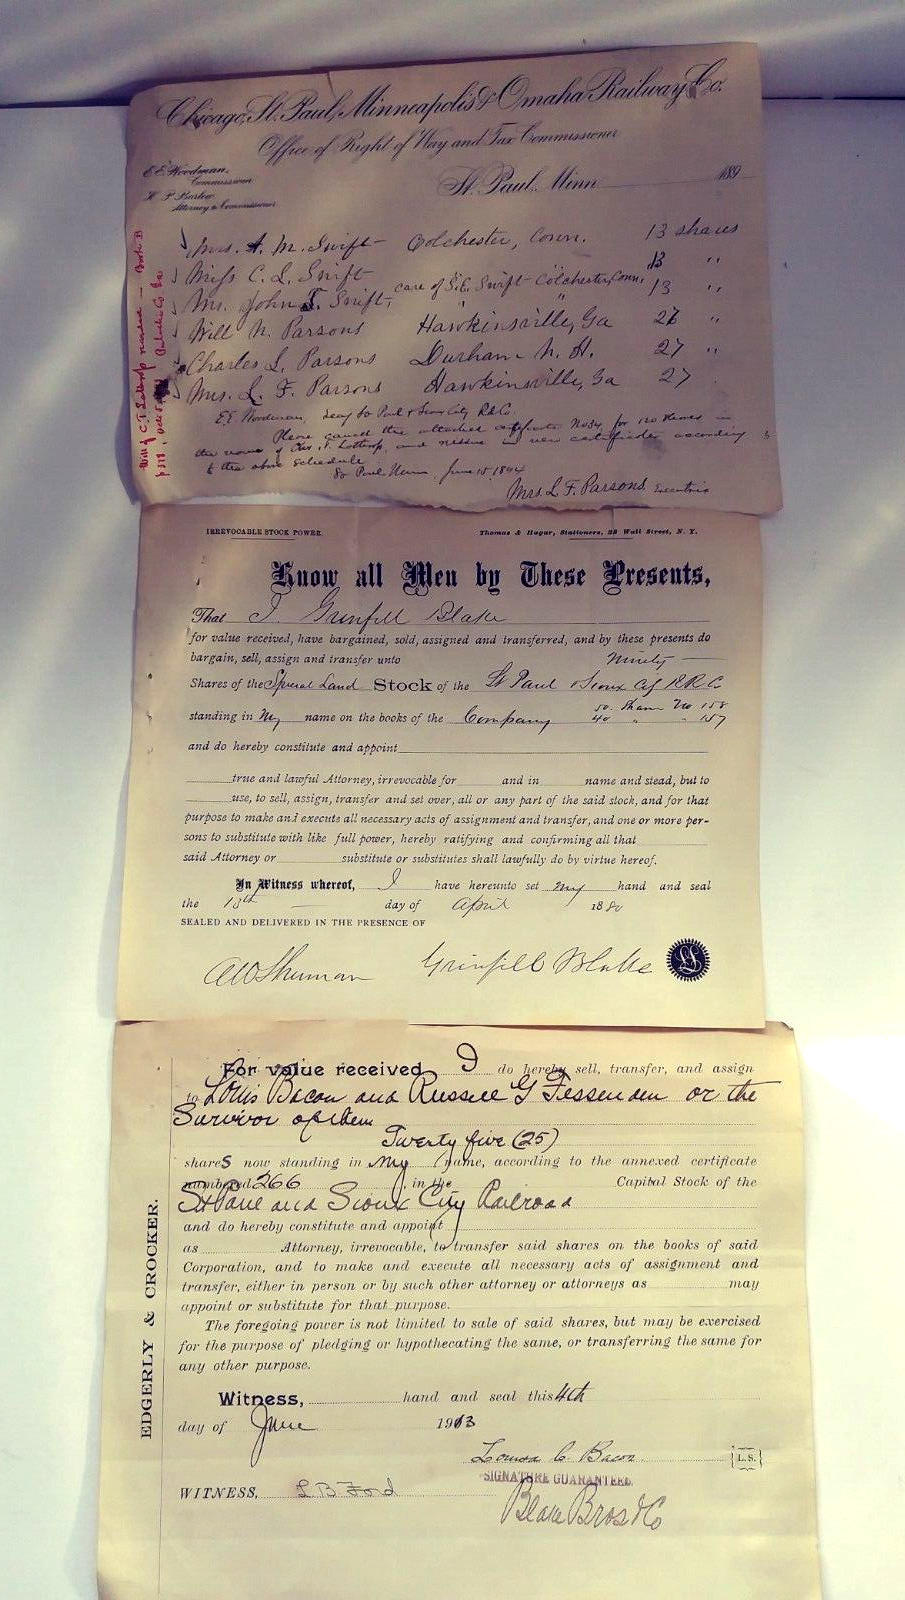 Chicago, St. Paul, Minneapolis & Omaha Railway Co.
Office of Right of Way and Tax Commissioner
E.E. Woodman,
Commissioner
H. P. Barlow
Attorney & Commissioner
St. Paul. Minn 189
Mrs. A. M. Swift Colchester, Conn. 13 shares
Miss C. L. Swift 13 "
Mr. John T. Swift, care of S.E. Swift Colchester, Conn. 13 "
Will N. Parsons Hawkinsville, Ga 27 "
Charles L. Parsons Durham N. H. 27 "
Mrs. L. F. Parsons Hawkinsville, Ga 27
E.E. Woodman, Secy St Paul & Sioux City R.R. Co.
Please cancel the attached certificate No 34 for 120 shares in
the name of Lothrop, and reissue in new certificates according
to the above schedule
St Paul Minn, June 15 1894
Mrs. L. F. Parsons Executrix
Will of C. F. Lothrop recorded Book B
IRREVOCABLE STOCK POWER.
Thomas & Hagar, Stationers, 28 Wall Street, N. Y.
Know all Men by These Presents,
That I Grinfill Blake
for value received, have bargained, sold, assigned and transferred, and by these presents do
bargain, sell, assign and transfer unto Ninety
Shares of the Special Land Stock of the St Paul & Sioux City R.R. Co
50 Shares No 158
standing in My name on the books of the Company 40 " " 157
and do hereby constitute and appoint
true and lawful Attorney, irrevocable for and in name and stead, but to
use, to sell, assign, transfer and set over, all or any part of the said stock, and for that
purpose to make and execute all necessary acts of assignment and transfer, and one or more per-
sons to substitute with like full power, hereby ratifying and confirming all that
said Attorney or substitute or substitutes shall lawfully do by virtue hereof.
In Witness whereof, I have hereunto set my hand and seal
the 13th day of April 1880
SEALED AND DELIVERED IN THE PRESENCE OF
A W Sherman Grinfill Blake
LS
EDGERLY & CROCKER.
For value received I do hereby sell, transfer, and assign
to Louis Bacon and Russell G Fessenden or the
Survivor of them
Twenty five (25)
shares now standing in my name, according to the annexed certificate
numbered 266, in the Capital Stock of the
St Paul and Sioux City Railroad
and do hereby constitute and appoint
as Attorney, irrevocable, to transfer said shares on the books of said
Corporation, and to make and execute all necessary acts of assignment and
transfer, either in person or by such other attorney or attorneys as may
appoint or substitute for that purpose.
The foregoing power is not limited to sale of said shares, but may be exercised
for the purpose of pledging or hypothecating the same, or transferring the same for
any other purpose.
Witness, hand and seal this 4th
day of June 1903
Louisa C. Bacon L.S.
SIGNATURE GUARANTEED.
WITNESS, L B Ford
Blake Bros & Co